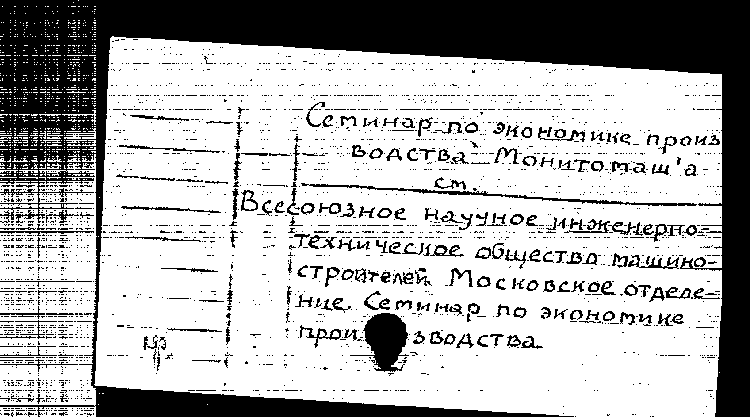 Семинар по экономике произ
водства Монитомаш'а
см.
Всесоюзное научное инженерно-
техническое общество машино-
строителей. Московское отделе-
ние. Семинар по экономике
производства